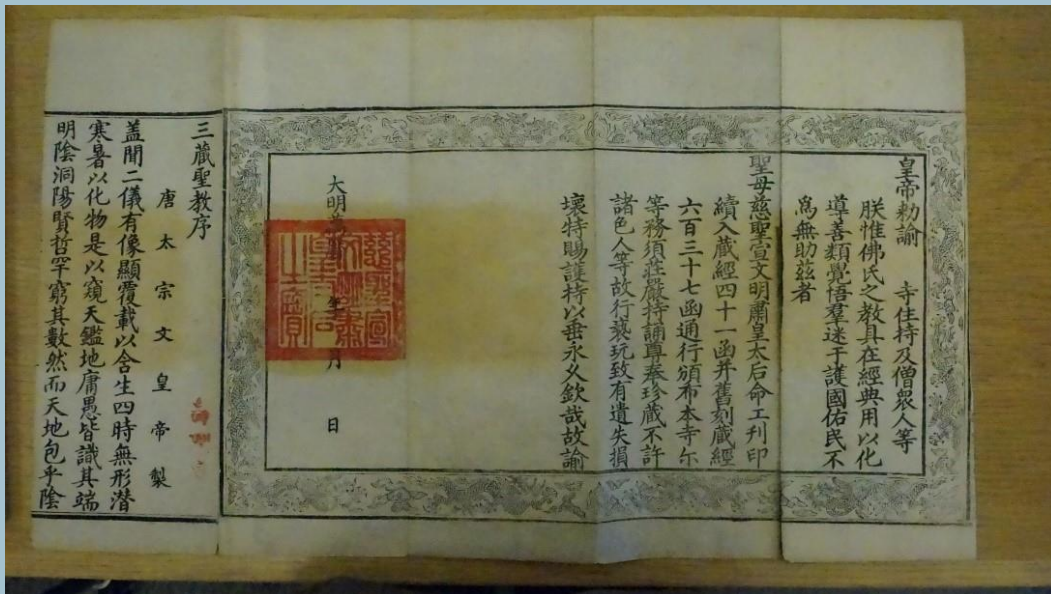 皇帝勅諭　寺住持及僧衆人等
朕惟佛氏之教具在經典用以化
導善類覺悟羣迷于護國佑民不
爲無助茲者
聖母慈聖宣文明肅皇太后命工刊印
續入藏經四十一函并舊刻藏經
六百三十七函通行頒布本寺尓
等務須莊嚴持誦尊奉珍藏不許
諸色人等故行褻玩致有遺失損
壞特賜護持以垂永久欽哉故諭
大明　年　月　日
慈聖宣
文明肅
皇太后
之寶
三藏聖教序
唐太宗文皇帝製
盖聞二儀有像顯覆載以含生四時無形潛
寒暑以化物是以窺天鑑地庸愚皆識其端
明陰洞陽賢哲罕窮其數然而天地包乎陰